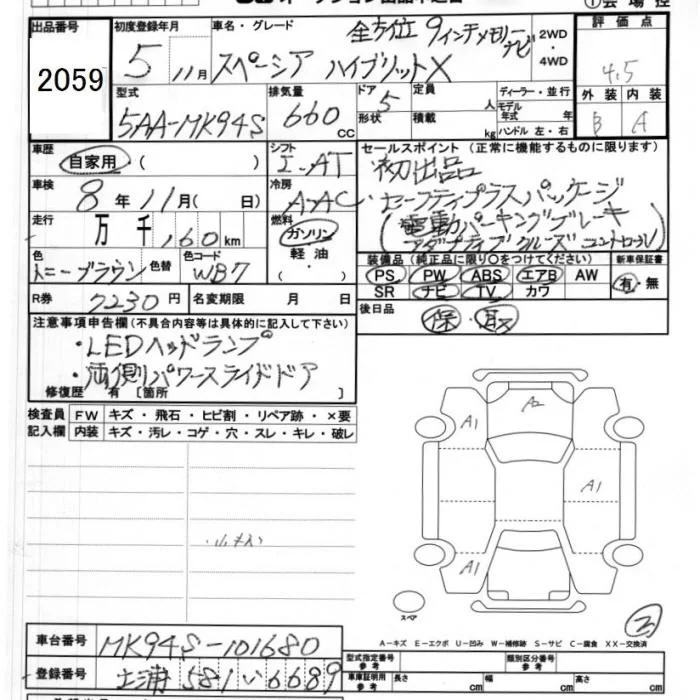 出品番号 2059
初度登録年月 5 11月
車名・グレード 全方位 9インチメモリーナビ
スペーシア ハイブリットX
2WD・4WD
評価点 4.5
外装 B 内装 A
型式 5AA-MK94S
排気量 660 cc
ドア 5 形状
定員 人 積載 kg
ディーラー・並行
モデル年式 年
ハンドル 左・右
車歴 自家用 ( )
シフト I-AT
セールスポイント (正常に機能するものに限ります)
初出品
セーフティプラスパッケージ
(電動パーキングブレーキ
アダプティブクルーズコントロール)
車検 8年11月( 日)
冷房 AAC
走行 万 千 160 km
燃料 ガソリン 軽油 ・( )
色 トニーブラウン 色替 色コード WB7
装備品 (純正品に限り○をつけてください)
PS PW ABS エアB AW
SR ナビ TV カワ
新車保証書 有・無
R券 7230円 名変期限 月 日
後日品 保・取
注意事項申告欄 (不具合内容等は具体的に記入して下さい)
・LEDヘッドランプ
・両側パワースライドドア
修復歴 有 [箇所 ]
検査員記入欄
FW キズ・飛石・ヒビ割・リペア跡・×要
内装 キズ・汚レ・コゲ・穴・スレ・キレ・破レ
A2
A1
A1
A1
スペア
A-キズ E-エクボ U-凹み W-補修跡 S-サビ C-腐食 XX-交換済
車台番号 MK94S-101680
登録番号 土浦 581 い 6689
型式指定番号 参考 類別区分番号 参考
車庫証明用 参考 長さ cm 幅 cm 高さ cm